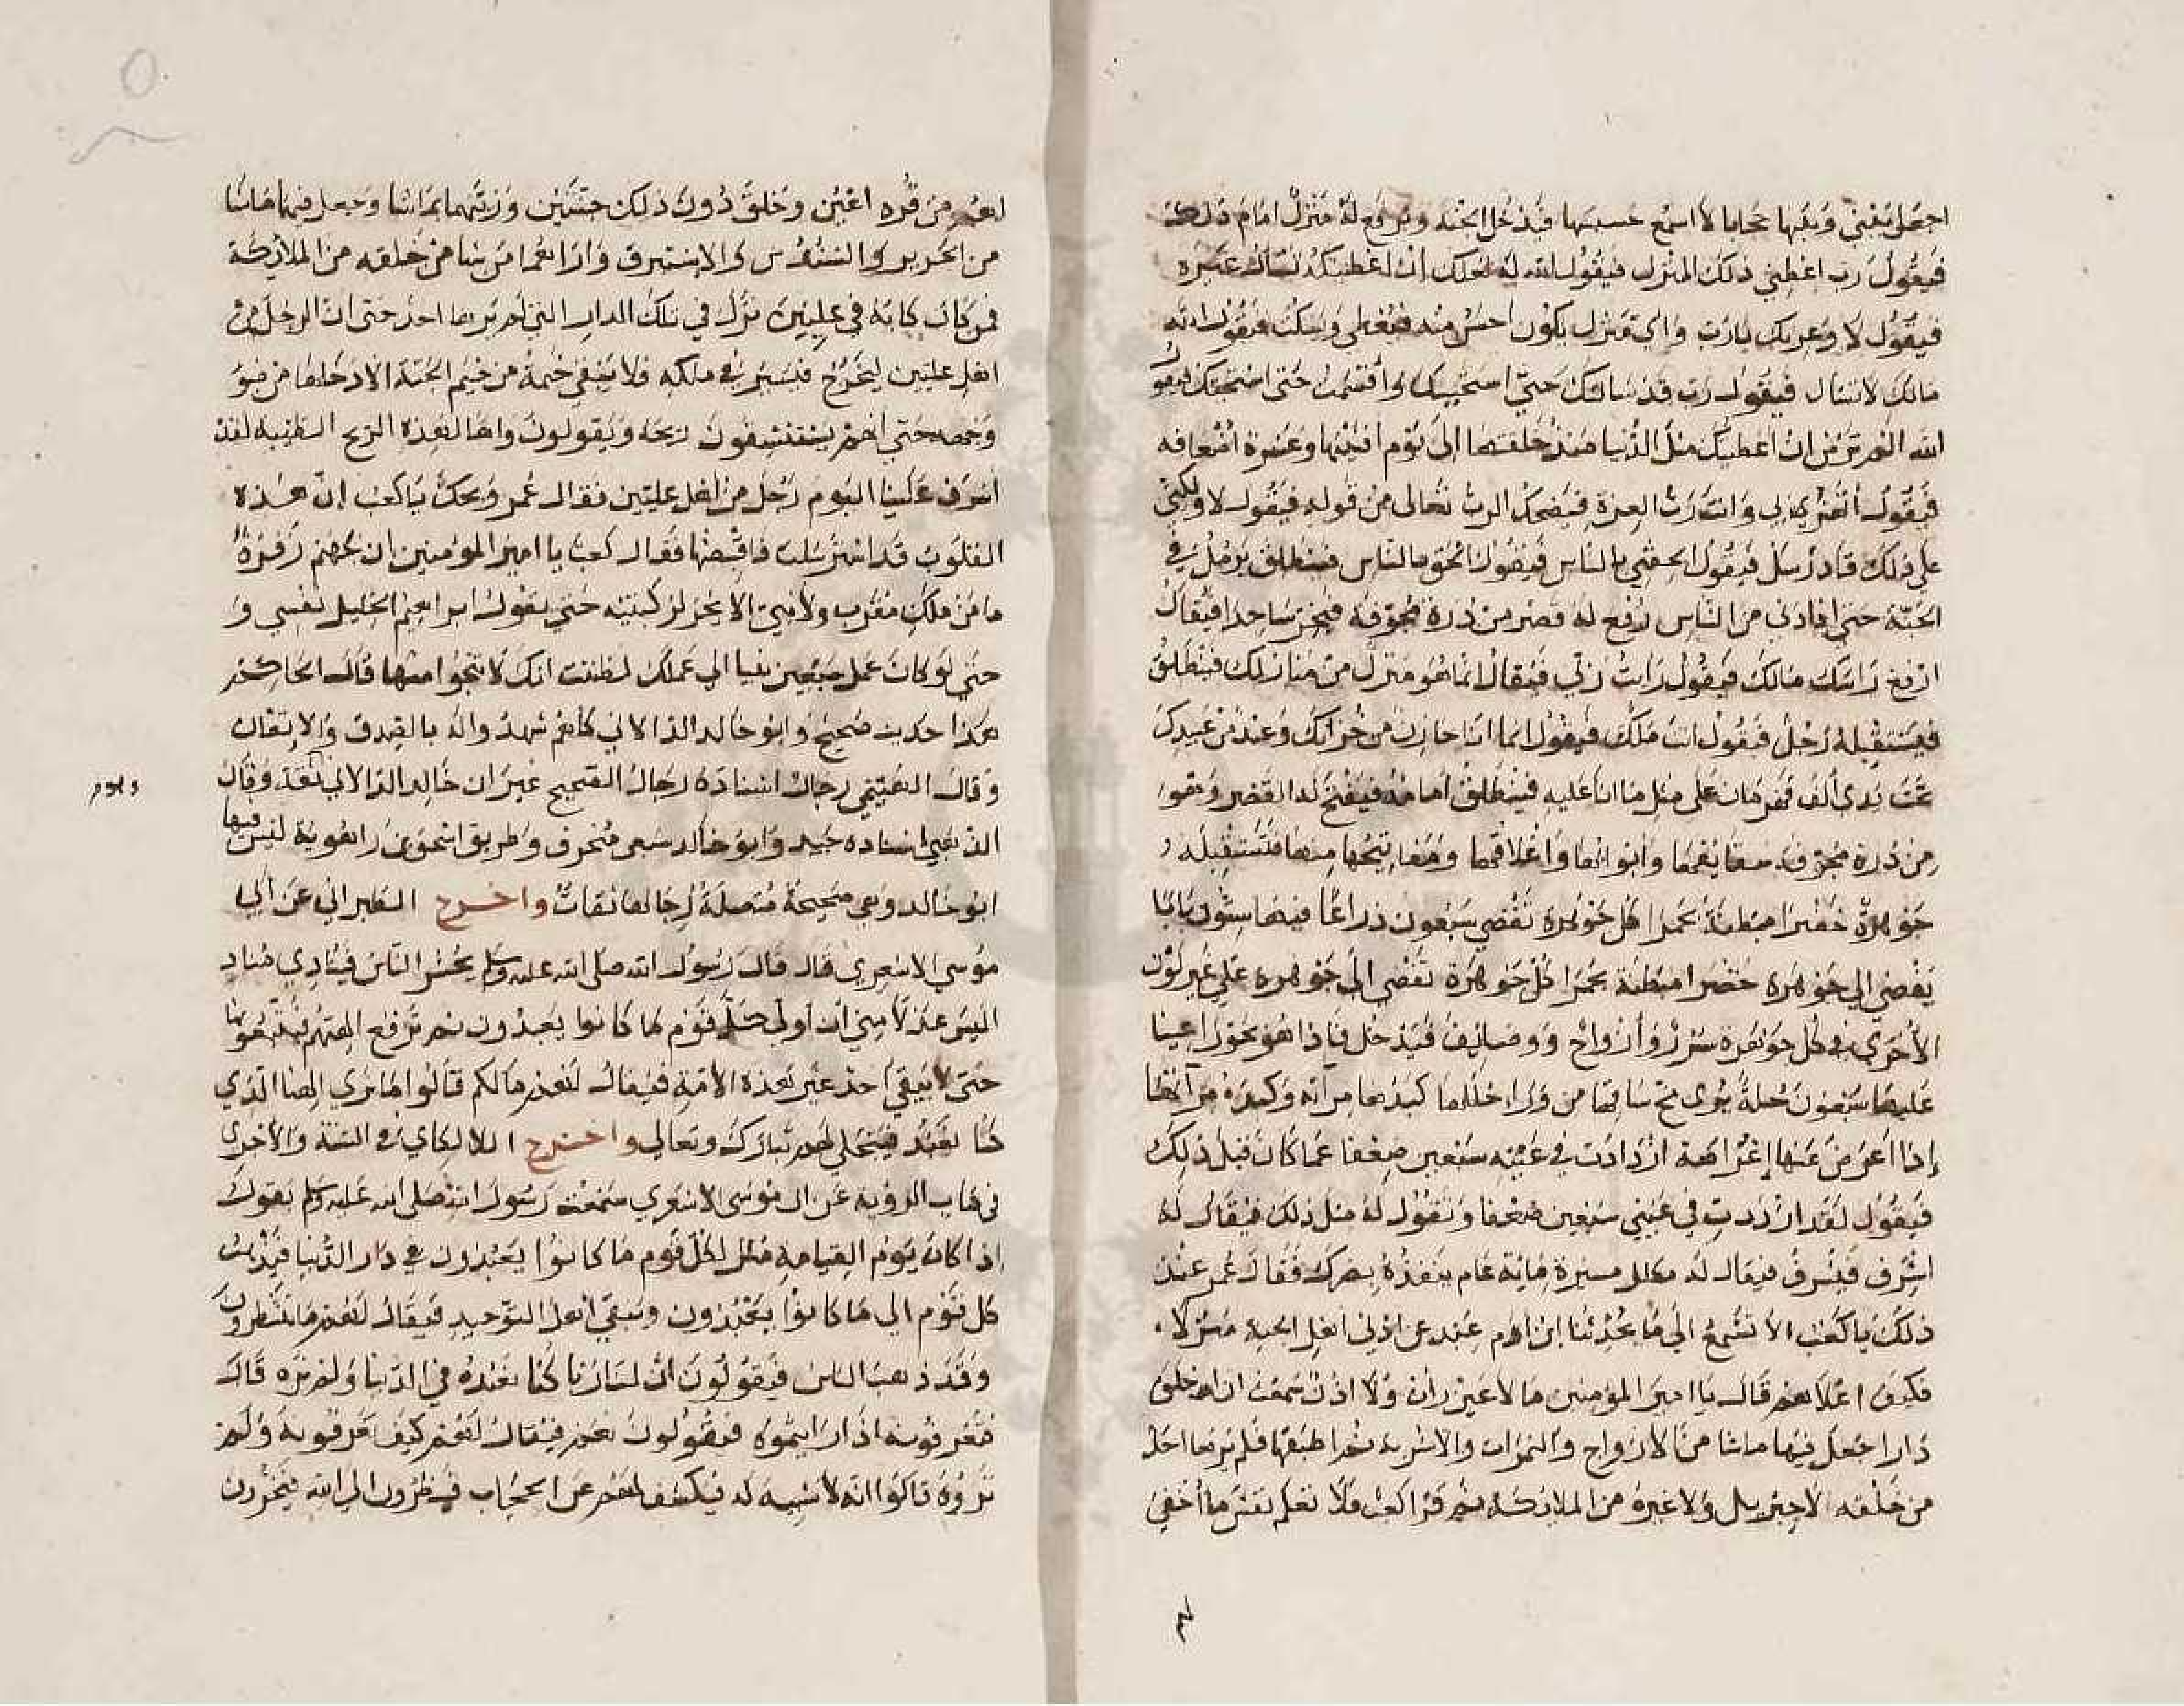 اجعل بيني وبينها حجابا لا اسمع حسيسها فيدخل الجنة ويرفع له منزل امام ذلك
فيقول رب اعطني ذلك المنزل فيقول الله له لعلك ان اعطيتكه تسأل غيره
فيقول لا وعزتك يا رب واي منزل يكون احسن منه فيعطي ويسكت فيقول الله
مالك لا تسال فيقول رب قد سالتك حتي استحييتك واقسمت حتى استحيتك فيقول
الله الم ترض ان اعطيك مثل الدنيا منذ خلقتها الى يوم افنيتها وعشرة اضعافه
فيقول أتهزي بي وانت رب العزة فيضحك الرب تعالى من قوله فيقول لا ولكني
علي ذلك قادر سل فيقول الحقني بالناس فيقول الحق بالناس فينطلق يرمل في
الجنة حتى اذا دنى من الناس رفع له قصر من درة مجوفة فيخر ساجدا فيقال
ارفع راسك مالك فيقول رايت ربي فيقال انما هو منزل من منازلك فينطلق
فيستقبله رجل فيقول انت ملك فيقول انما انا خازن من خزانك وعبد من عبيدك
تحت يدي ألف قهرمان على مثل ما انا عليه فينطلق امامه فيفتح له القصر وهو
من درة مجوفة سقايفها وابوابها واغلاقها ومفاتيحها منها فتستقبله
جوهرة خضرا مبطنة بحمرا كل جوهرة تفضي سبعون ذراعا فيها ستون بابا
يفضي الي جوهره خضرا مبطنة بحمرا كل جوهرة تفضي الى جوهره على غير لون
الأخرى في كل جوهرة سرر وأزواج ووصايف فيدخل فاذا هو بحورا عينا
عليها سبعون حلة يرى مخ ساقها من ورا حللها كبدها مرآته وكبده مرآتها
إذا اعرض عنها إعراضة ازدادت في عينه سبعين ضعفا عما كان قبل ذلك
فيقول لقد ازددت في عيني سبعين ضعفا وتقول له مثل ذلك فيقال له
اشرف فيشرف فيقال له ملك مسيرة مائة عام ينفذه بصرك فقال عمر عند
ذلك يا كعب الا تسمع الي ما يحدثنا ابن ام عبد عن ادنى اهل الجنة منزلا
فكيف اعلاهم قال يا امير المؤمنين ما لا عين رأت ولا اذن سمعت ان الله خلق
دارا جعل فيها ما شا من الازواج والثمرات والاشربة ثم اطبقها فلم يرها احد
من خلقه لا جبريل ولا غيره من الملائكة ثم قرا كعب فلا تعلم نفس ما أخفي
لهم من قره اعين وخلق دون ذلك جنتين وزينهما بما شا وجعل فيهما ما شا
من الحرير والسندس والاستبرق وأراهما من شا من خلقه من الملائكة
فمن كان كتابه في عليين نزل في تلك الدار التي لم يرها احد حتى ان الرجل من
اهل عليين ليخرج فيسير في ملكه فلا تبقي خيمة من خيم الجنة الا دخلها من ضوء
وجهه حتي انهم يستنشقون ريحه ويقولون واها لهذه الريح الطيبه لقد
اشرف علينا اليوم رجل من اهل عليين فقال عمر ويحك يا كعب إن هذه
القلوب قد استرسلت فاقبضها فقال كعب يا امير المؤمنين ان لجهنم زفرة
ما من ملك مقرب ولا نبي الا يخر لركبتيه حتي يقول ابراهيم الخليل نفسي و
حتي لو كان عمل سبعين نبيا الي عملك لظننت انك لا تنجوا منها قال الحاكم
هذا حديث صحيح وابو خالد الدالاني كلهم شهدوا له بالصدق والاتقان
وقال الهيثمي رجال اسناده رجال الصحيح غير ان خالد الدالاني ثقة وقال
الذهبي اسناده جيد وابو خالد شيعي منحرف وطريق اسحق بن راهوية ليس فيها
ابو خالد وهي صحيحة متصلة رجالها ثقات واخرج الطبراني عن ابي
موسي الاشعري قال قال رسول الله صلى الله عليه وسلم يحشر الناس فينادي مناد
اليس عدلا مني ان أولي كل قوم ما كانوا يعبدون ثم ترفع الهتهم فيتبعونها
حتي لا يبقي احد غير هذه الأمة فيقال لهم ما لكم قالوا ما نري الهنا الذي
كنا نعبد فيتجلي لهم تبارك وتعالي واخرج اللالكاي في السنة والأجري
في كتاب الرؤية عن ابي موسى الاشعري سمعت رسول الله صلى الله عليه وسلم يقول
اذا كان يوم القيامة مثل لكل قوم ما كانوا يعبدون في دار الدنيا فيذهب
كل قوم الي ما كانوا يعبدون ويبقي اهل التوحيد فيقال لهم ما تنتظرون
وقد ذهب الناس فيقولون ان لنا ربا كنا نعبده في الدنيا ولم نره قال
فتعرفونه اذا رايتموه فيقولون نعم فيقال لهم كيف تعرفونه ولم
تروه قالوا انه لا شبيه له فيكشف لهم عن الحجاب فينظرون الي الله فيخرون